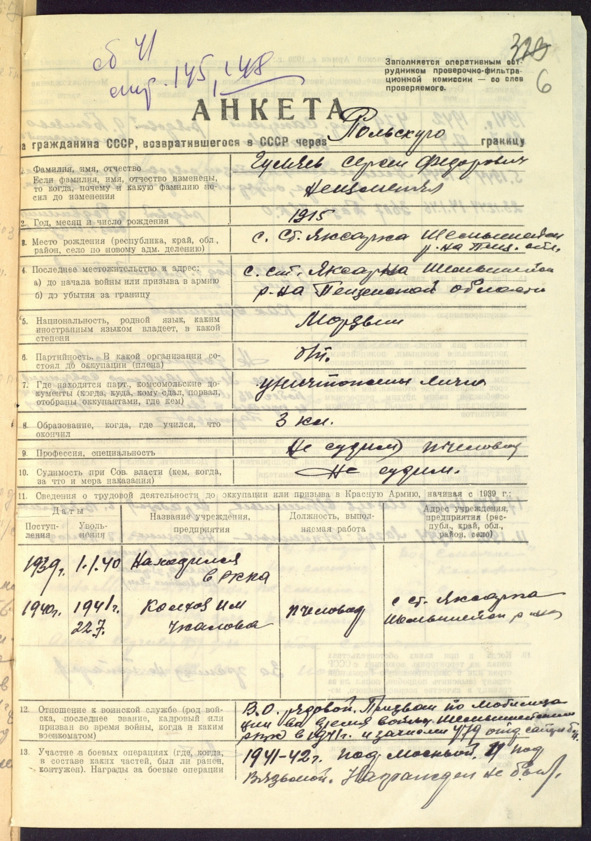 сб 41
стр. 145, 148
6
Заполняется оперативным сот-
рудником проверочно-фильтра-
ционной комиссии — со слов
проверяемого.
АНКЕТА
а гражданина СССР, возвратившегося в СССР через Польскую границу
Фамилия, имя, отчество
Если фамилия, имя, отчество изменены,
то когда, почему и какую фамилию но-
сил до изменения
Сергей Федорович
2. Год, месяц и число рождения
1915
3. Место рождения (республика, край, обл.,
район, село по новому адм. делению)
с. Ст. Яксарка Шемышейск
р-на Пенз. обл.
4. Последнее местожительство и адрес:
а) до начала войны или призыва в армию
б) до убытия за границу
с. ст. Яксарка Шемышейск
р-на Пензенской области
5. Национальность, родной язык, каким
иностранным языком владеет, в какой
степени
Мордвин
6. Партийность. В какой организации со-
стоял до оккупации (плена)
б/п.
7. Где находятся парт., комсомольские до-
кументы (когда, куда, кому сдал, порвал,
отобраны оккупантами, где кем)
уничтожены лично
8. Образование, когда, где учился, что
окончил
3 кл.
9. Профессия, специальность
Не судим) пчеловод
10. Судимость при Сов. власти (кем, когда,
за что и мера наказания)
Не судим.
11. Сведения о трудовой деятельности до оккупации или призыва в Красную Армию, начиная с 1939 г.:
Даты
Посту-
пления
Уволь-
нения
Название учреждения,
предприятия
Должность, выпол-
няемая работа
Адрес учреждения,
предприятия (рес-
публ., край, обл.,
район, село)
1939г. 1.1.40 Находился
в РККА
1940г. 1941г. Колхоз им пчеловод с ст. Яксарка
22.7. Чкалова Шемышейск р-на
12. Отношение к воинской службе (род вой-
ска, последнее звание, кадровый или
призван во время войны, когда и каким
военкоматом)
В.О. рядовой. Призван по мобилиза
ции во время войны Шемышейским
в 1941г. и зачислен 479
13. Участие в боевых операциях (где, когда,
в составе каких частей, был ли ранен,
контужен). Награды за боевые операции
1941-42г. под Москвой, и под
Вязьмой. Награжден не был.